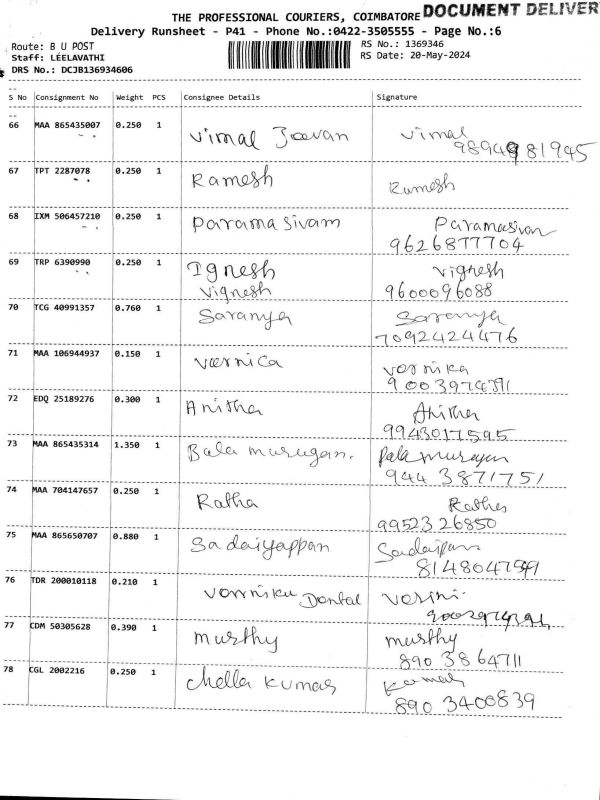 THE PROFESSIONAL COURIERS, COIMBATORE DOCUMENT DELIVER
Delivery Runsheet - P41 - Phone No.:0422-3505555 - Page No.:6
Route: B U POST RS No.: 1369346
Staff: LEELAVATHI RS Date: 20-May-2024
DRS No.: DCJB136934606
S No Consignment No Weight PCS Consignee Details Signature
66 MAA 865435007 0.250 1 Vimal Jeevan Vimal
9894981945
67 TPT 2287078 0.250 1 Ramesh Ramesh
68 IXM 506457210 0.250 1 Parama sivam Paramasivan
9626877704
69 TRP 6390990 0.250 1 Ignesh Vignesh
Vignesh 9600096088
70 TCG 40991357 0.760 1 Saranya Saranya
7092424476
71 MAA 106944937 0.150 1 Varnica Vernika
72 EDQ 25189276 0.300 1 Anitha Anitha
9943017595
73 MAA 865435314 1.350 1 Bala murugan. Bala murugan
944 3871751
74 MAA 704147657 0.250 1 Ratha Rathes
9952326850
75 MAA 865650707 0.880 1 Sadaiyappan
76 TDR 200010118 0.210 1 Dontal
77 CDM 50305628 0.390 1 Murthy Murthy
890 3864711
78 CGL 2002216 0.250 1 Chella Kumar Kumar
890 3400839